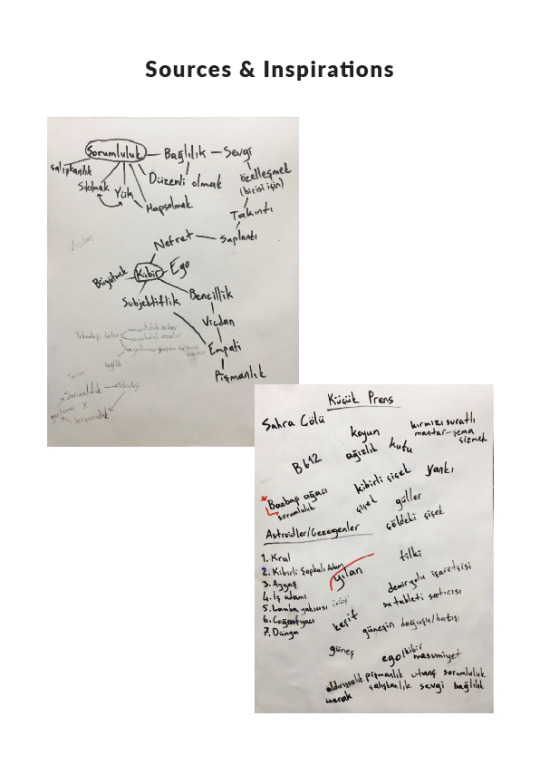 Sources & Inspirations
Sorumluluk Bağlılık Sevgi
çalışkanlık
Sıkılmak Yük Düzenli olmak özelleşmek
(birisi için)
Hapsolmak
Takıntı
Vicdan
Nefret Saplantı
Büyütmek Kibir Ego
Subjektiflik Bencillik
Vicdan
Empati
Pişmanlık
Sorumluluk
X
Sorumluluk
Küçük Prens
Sahra Çölü
koyun kırmızı suratlı
mantar-şema
çizmek
B612 ağızlık kutu
Baobap ağacı kibirli çiçek yankı
sorumluluk çiçek güller
çöldeki çiçek
Astroidler/Gezegenler
1. Kral
2. Kibirli Şapkalı Adam
3. Ayyaş
4. İş adamı
5. Lamba yakıcısı
6. Coğrafyacı
7. Dünya
yılan tilki
demiryolu işaretçisi
su tableti satıcısı
keşif
güneşin doğuşu/batışı
güneş ego/kibir
masumiyet
pişmanlık utanç sorumluluk
çalışkanlık sevgi bağlılık
merak